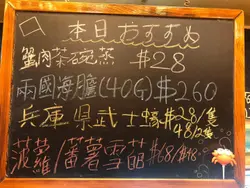 本日おすすめ
蟹肉茶碗蒸 $28
兩國海膽(40G) $260
兵庫県武士蠔 $28/隻
48/2隻
菠蘿/蕃薯雪葩 $68/$48